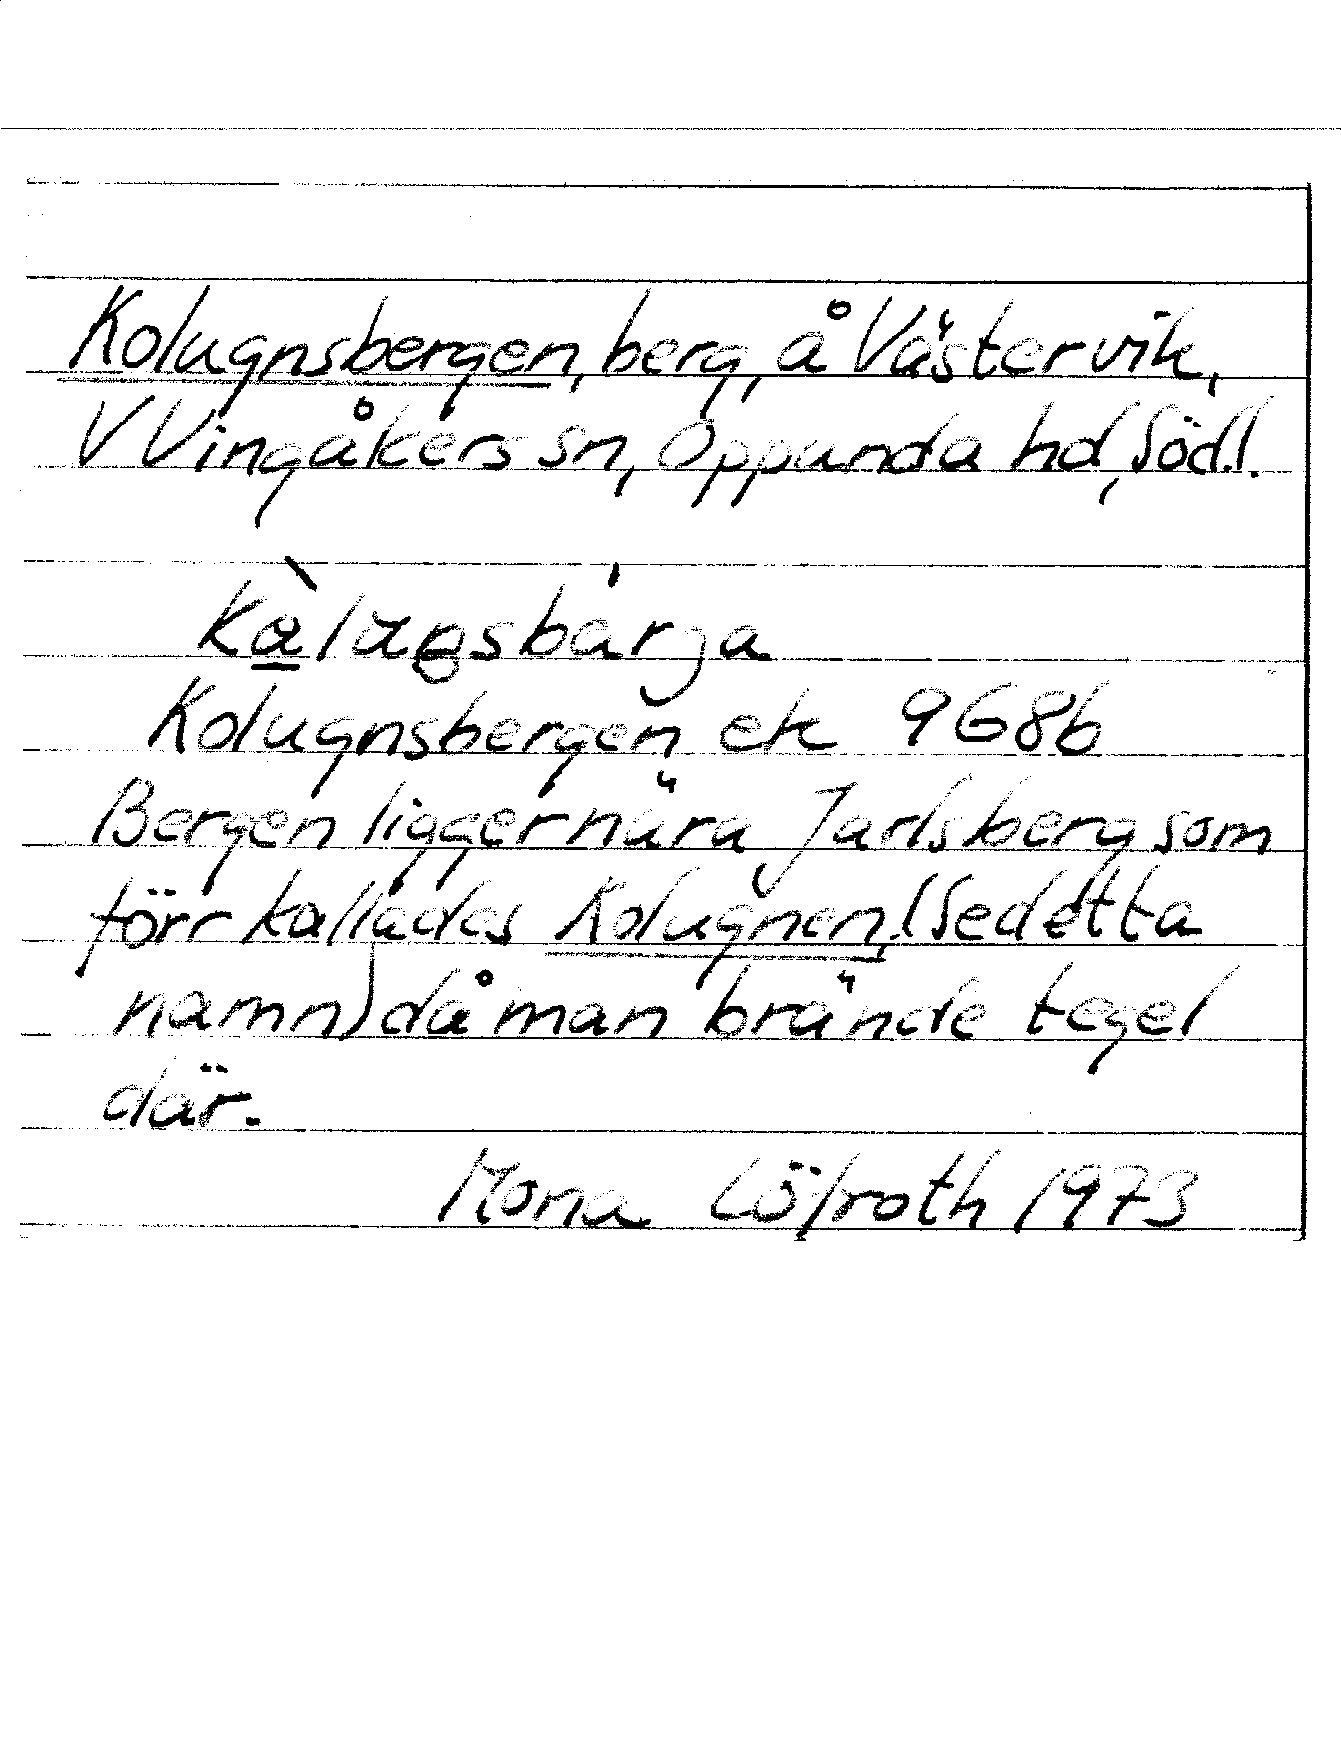 Kolugnsbergen, berg, å Västervik,
V Vingåkers sn, Oppunda hd, Södl.
Kolugnsbergen ek 9G8b
Bergen ligger nära Jarlsberg som
förr kallades Kolugnen, (se detta
namn) då man brände tegel
där.
Mona Löfroth 1973